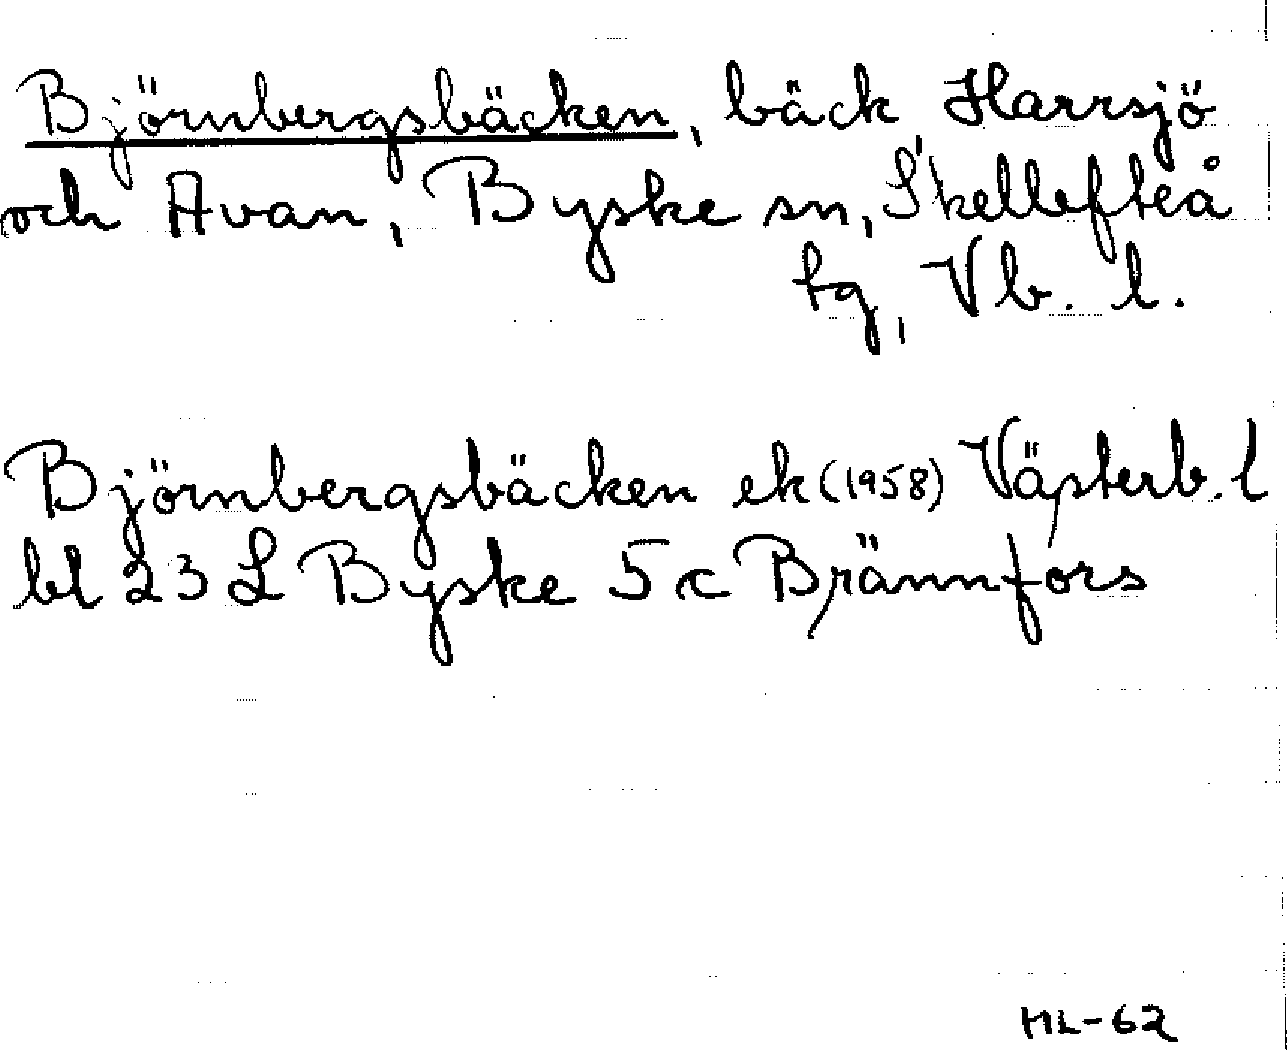 Björnbergsbäcken, bäck, Harrsjö
och Avan, Byske sn, Skellefteå
tg, Vb. l.
Björnbergsbäcken ek (1958) Västerb. l
bl 23 L Byske 5 c Brännfors
ML-62